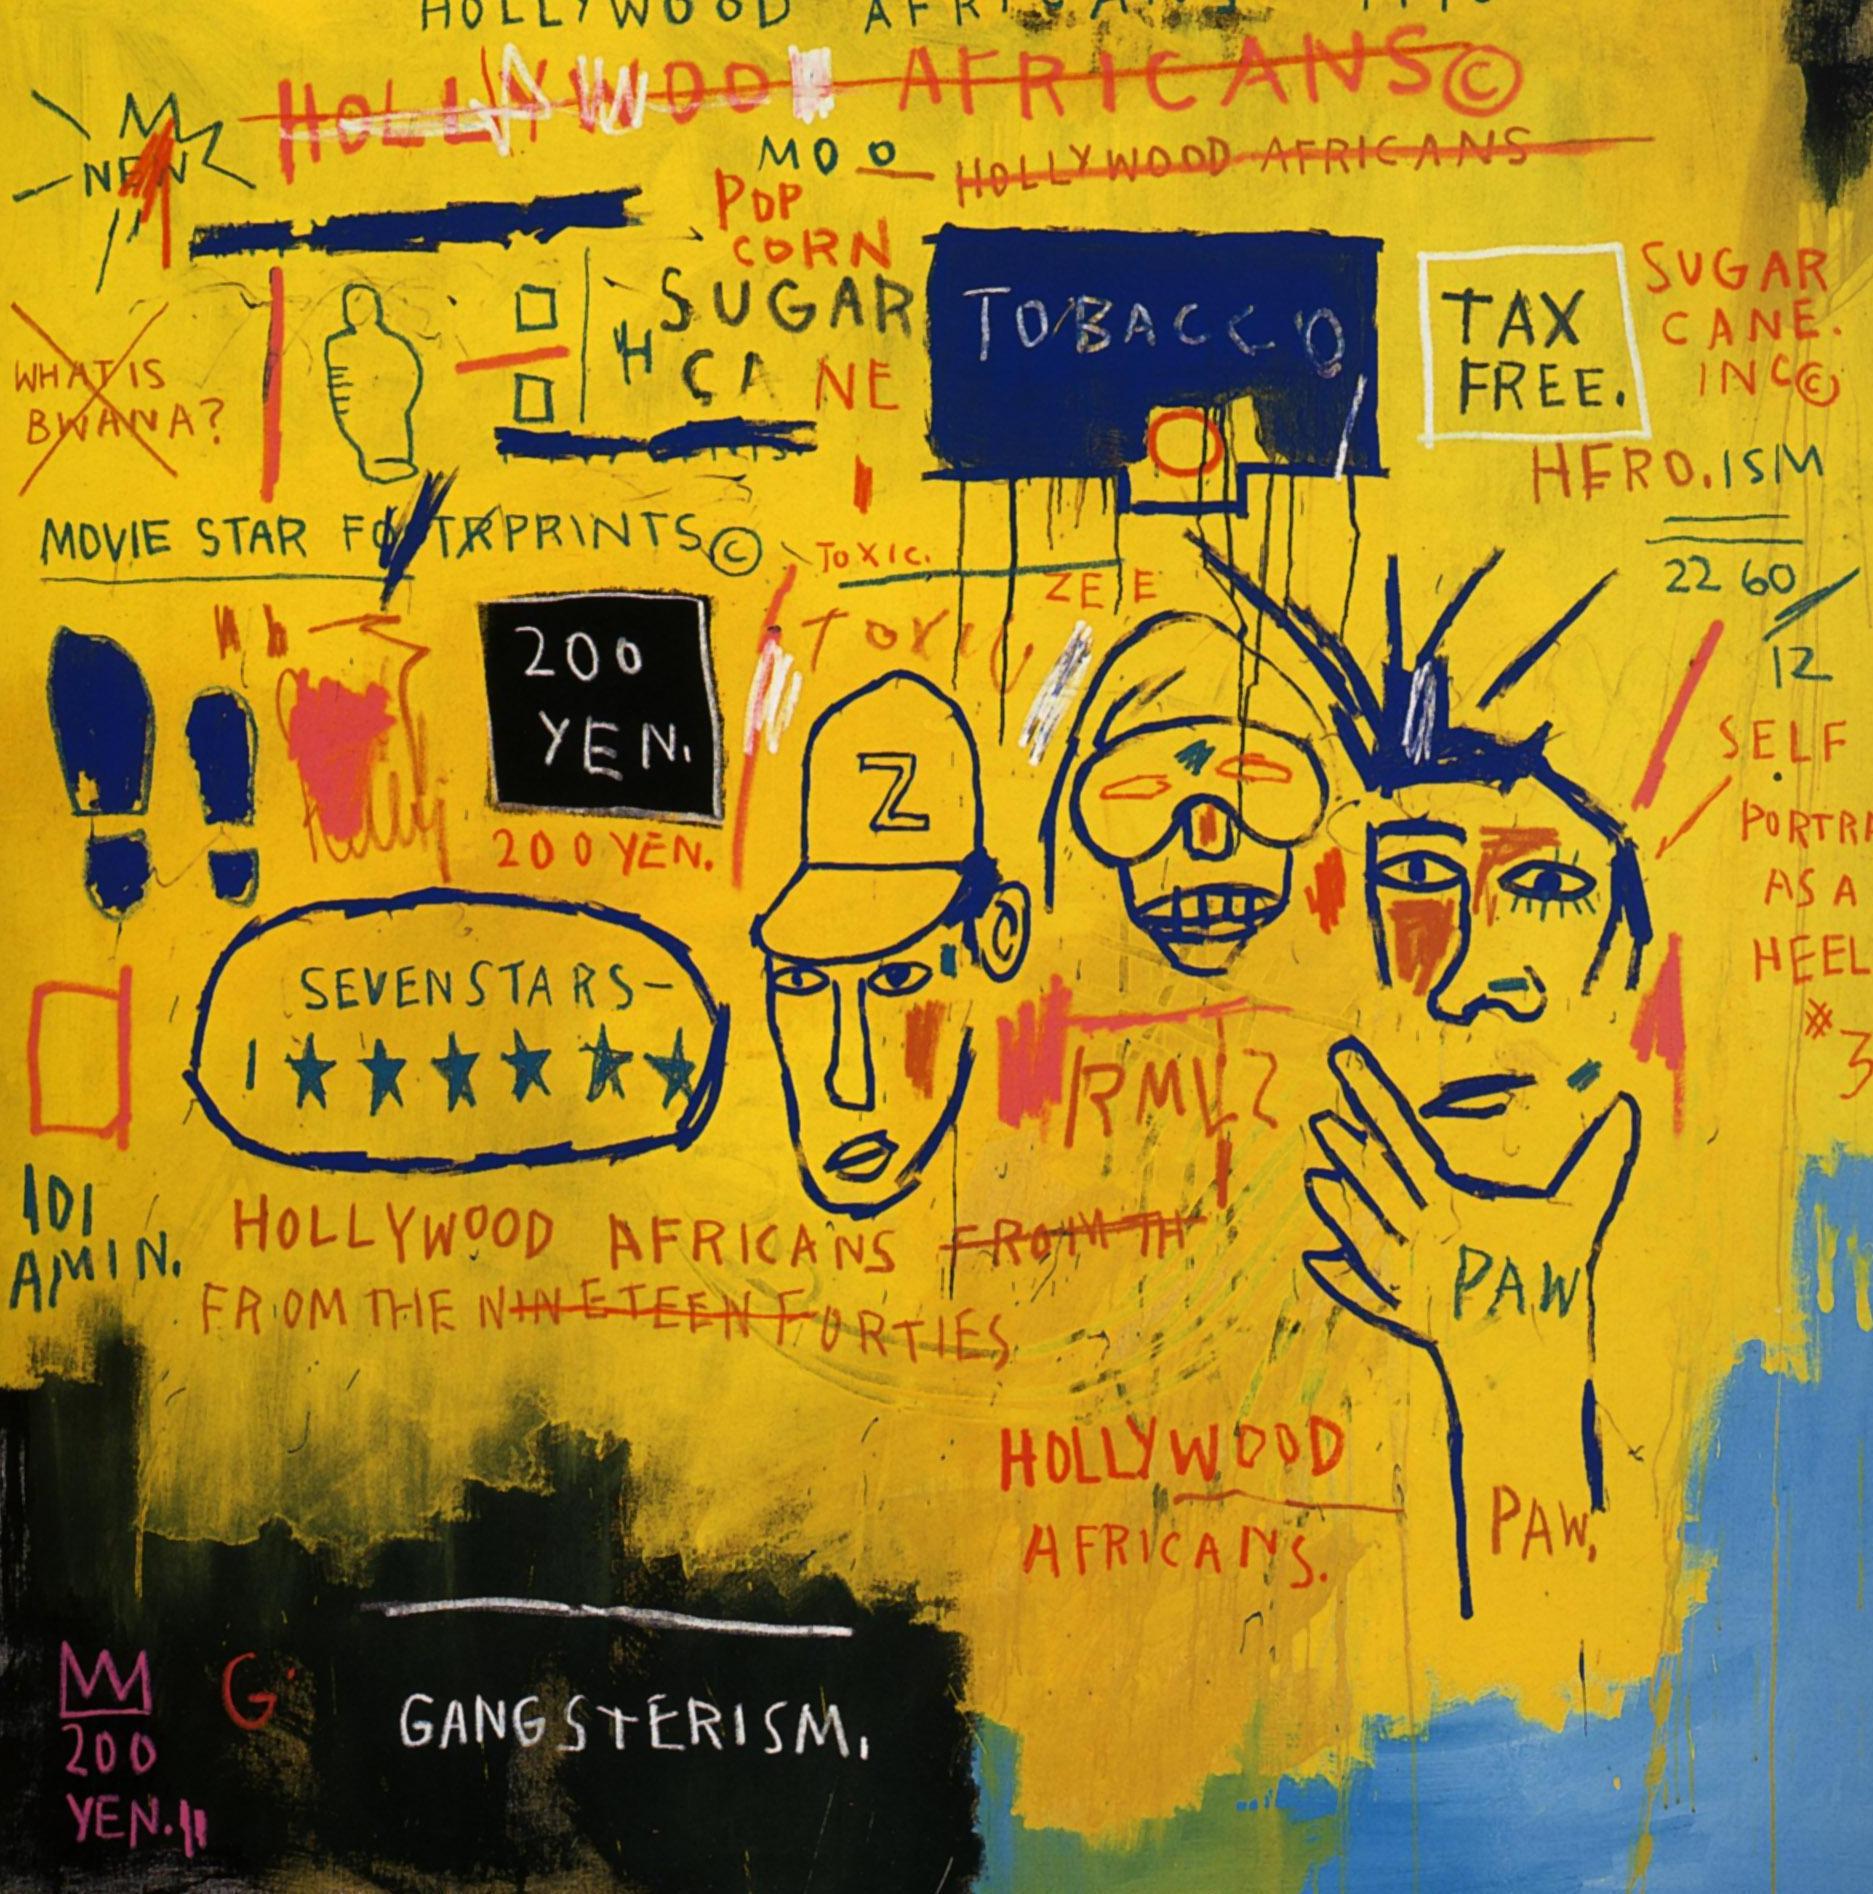 HOLLYWOOD AFRICANS
HOLLYWOOD AFRICANS©
NEW
MOO
HOLLYWOOD AFRICANS
POP
CORN
SUGAR
CANE
TOBACCO
TAX
FREE.
SUGAR
CANE.
INC©
WHAT IS
BWANA?
HERO.ISM
MOVIE STAR FOOTPRINTS©
TOXIC.
ZEE
22 60
TOXIC
12
200
YEN.
200 YEN.
Z
SELF
PORTRA
AS A
HEEL
#3
SEVEN STARS-
RMLZ
IDI
AMIN.
HOLLYWOOD AFRICANS FROM TH
FROM THE NINETEEN FORTIES
PAW
HOLLYWOOD
AFRICANS.
PAW,
G
GANGSTERISM.
200
YEN.